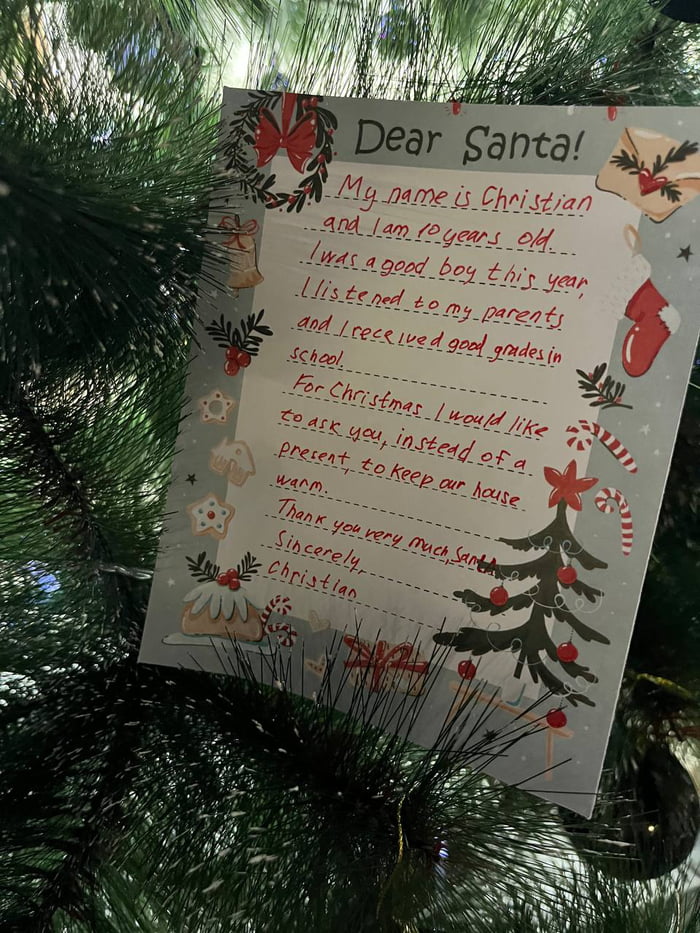 Dear Santa!
My name is Christian
and I am 10 years old.
I was a good boy this year,
I listened to my parents
and I received good grades in
school.
For Christmas I would like
to ask you, instead of a
present, to keep our house
warm.
Thank you very much, Santa
Sincerely,
Christian